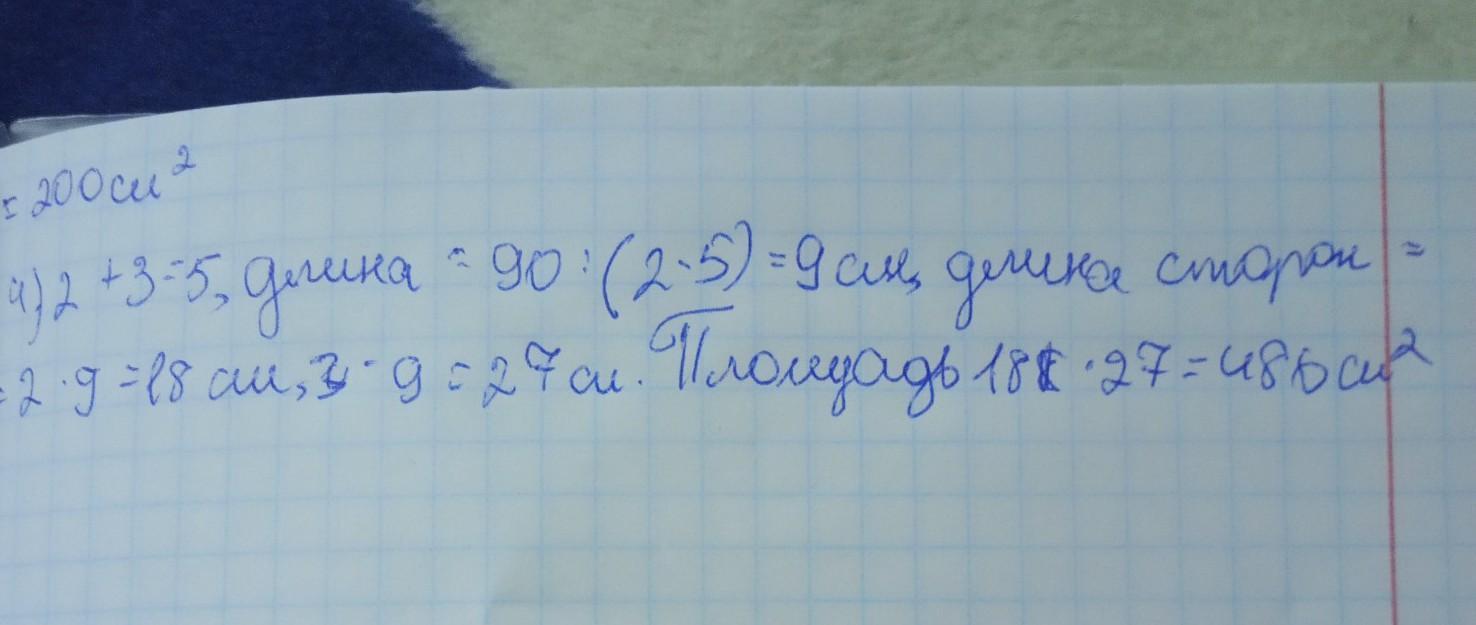 = 200 см²
4) 2 + 3 = 5, длина = 90 : (2 · 5) = 9 см, длина сторон =
= 2 · 9 = 18 см, 3 · 9 = 27 см. Площадь 18 · 27 = 486 см²